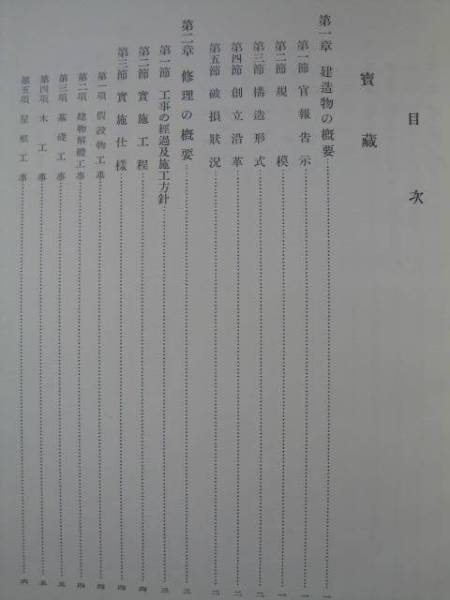 目次
寶藏
第一章 建造物の概要……一
第一節 官報告示……一
第二節 規模……一
第三節 構造形式……一
第四節 創立沿革……二
第五節 破損狀況……二
第二章 修理の概要……三
第一節 工事の經過及施工方針……三
第二節 實施工程……四
第三節 實施仕樣……四
第一項 假設物工事……四
第二項 建物解體工事……四
第三項 基礎工事……五
第四項 木工事……五
第五項 屋根工事……六